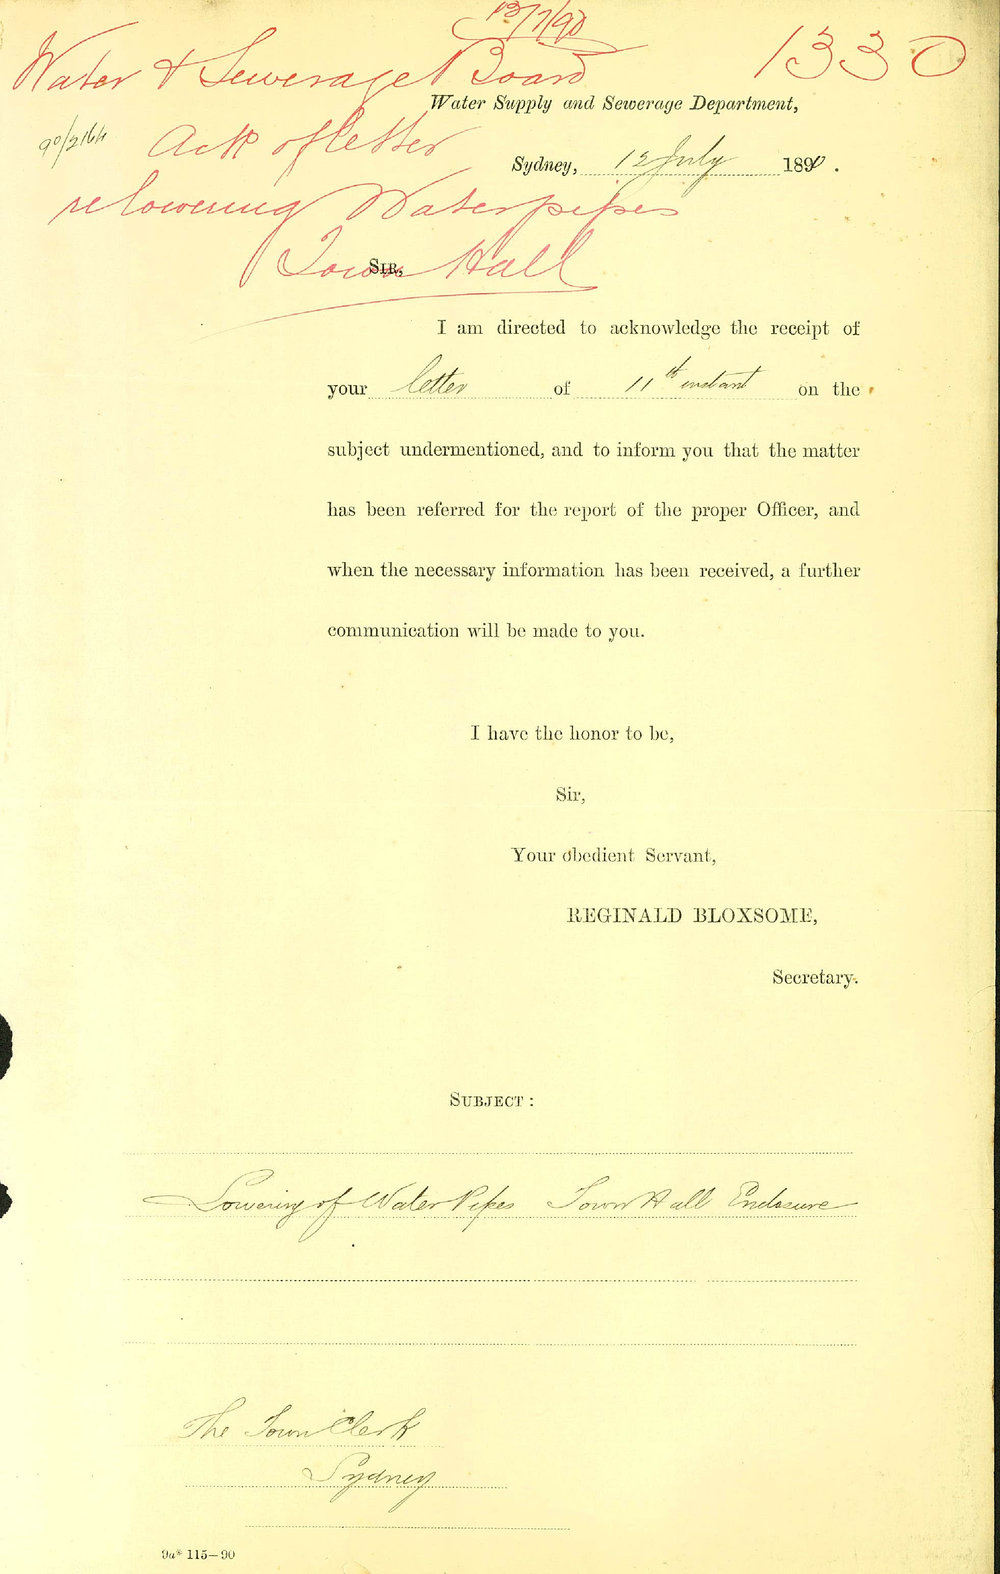 12/7/90
Water & Sewerage Board 1330
Water Supply and Sewerage Department,
90/2164 Ack of letter
Sydney, 12 July 1890.
re lowering Waterpipes
Town Hall
SIR,
I am directed to acknowledge the receipt of
your letter of 11th instant on the
subject undermentioned, and to inform you that the matter
has been referred for the report of the proper Officer, and
when the necessary information has been received, a further
communication will be made to you.
I have the honor to be,
Sir,
Your obedient Servant,
REGINALD BLOXSOME,
Secretary.
SUBJECT:
Lowering of Water Pipes Town Hall Enclosure
The Town Clerk
Sydney
9a* 115—90